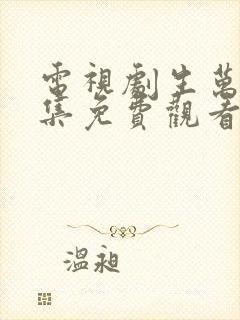 電視劇生萬
集免費觀看
溫昶